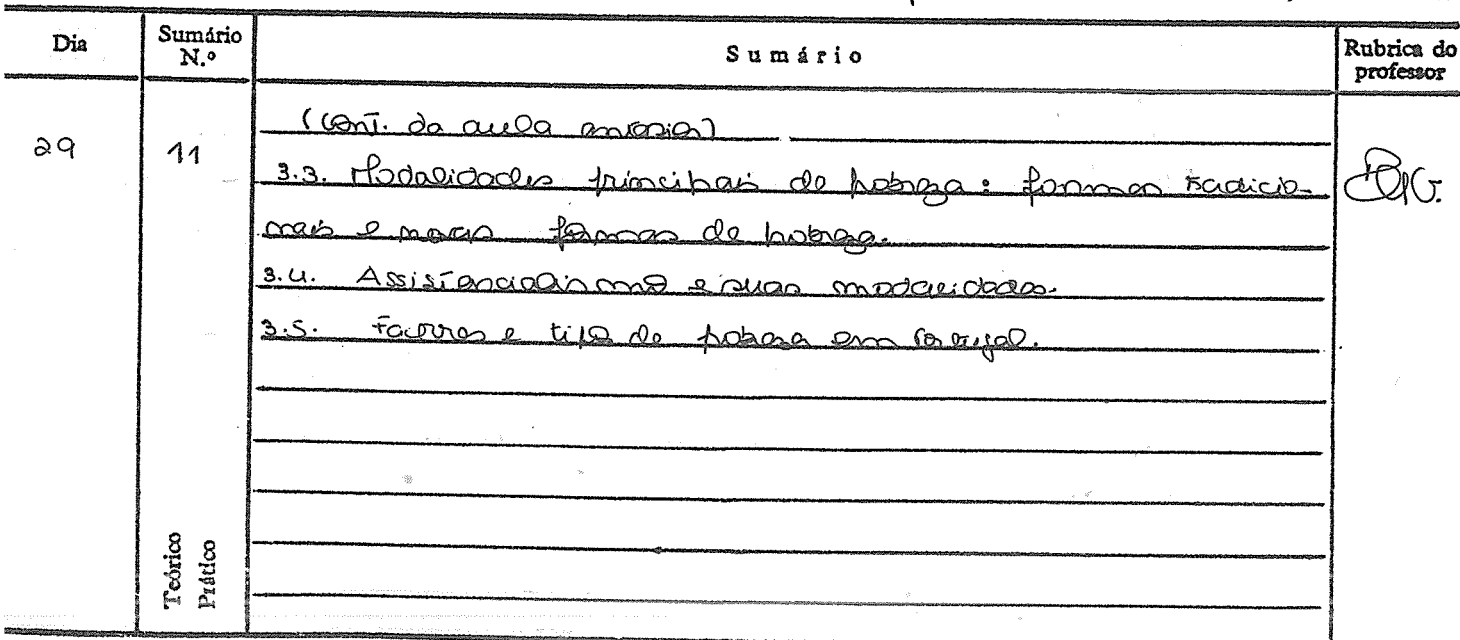 Dia Sumário N.º Sumário Rubrica do professor
(Cont. da aula anterior)
29 11
3.3. Modalidades principais de pobreza: formas tradicio-
nais e novas formas de pobreza.
3.4. Assistencialismo e suas modalidades.
3.5. Factores e tipo de pobreza em Portugal.
Teórico
Prático